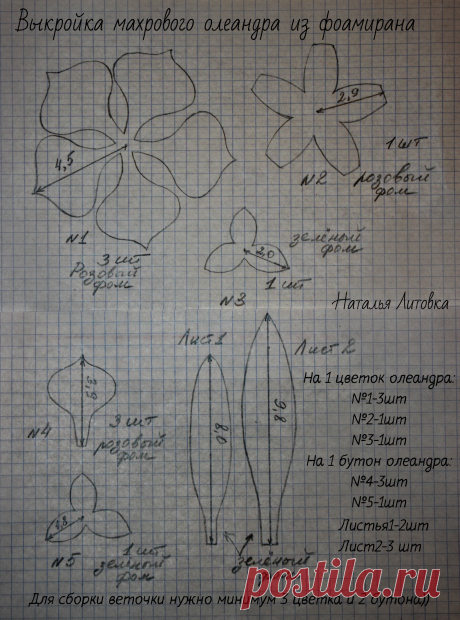 Выкройка махрового олеандра из фоамирана
4,5
2,9
1 шт
№2 розовый
фом
№1
3 шт
Розовый
фом
зелёный
фом
2,0
1 шт
№3
Наталья Литовка
Лист 1
Лист 2
3,9
8,0
9,8
№4
3 шт
розовый
фом
1,8
№5
1 шт
зелёный
фом
зелёный
фом
На 1 цветок олеандра:
№1-3шт
№2-1шт
№3-1шт
На 1 бутон олеандра:
№4-3шт
№5-1шт
Листья1-2шт
Лист2-3 шт
Для сборки веточки нужно минимум 3 цветка и 2 бутона))
postila.ru